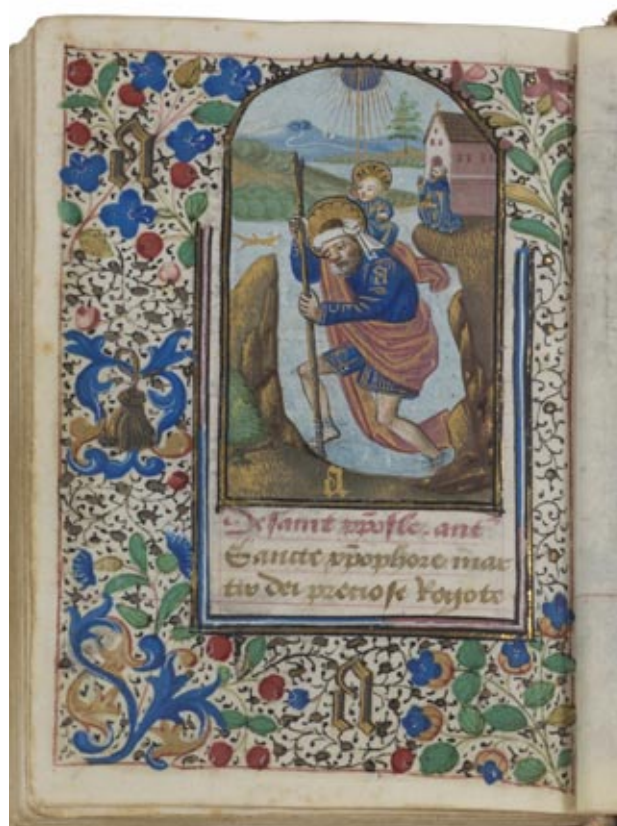 a
a
De saint xp̄ofle. ant̄
Sancte xp̄ophore mar
tir dei preciose Rogo te
a